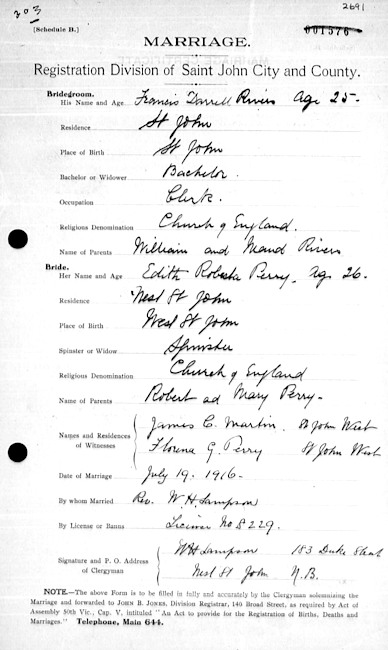 203
2691
[Schedule B.]
001576
MARRIAGE.
Registration Division of Saint John City and County.
Bridegroom.
His Name and Age Francis Darrell Rivers Age 25-
Residence St John
Place of Birth St John
Bachelor or Widower Bachelor
Occupation Clerk.
Religious Denomination Church of England.
Name of Parents William and Maud Rivers
Bride.
Her Name and Age Edith Roberta Perry. Age 26.
Residence West St John
Place of Birth West St John
Spinster or Widow Spinster
Religious Denomination Church of England
Name of Parents Robert ad Mary Perry-
Names and Residences of Witnesses
James C. Martin. St John West
G. Perry St John West
Date of Marriage July 19. 1916.
By whom Married Rev. W. H. Sampson
By License or Banns License No 8229.
Signature and P. O. Address of Clergyman
W H Sampson 183 Duke Street
West St John N.B.
NOTE.—The above Form is to be filled in fully and accurately by the Clergyman solemnising the
Marriage and forwarded to JOHN B. JONES, Division Registrar, 140 Broad Street, as required by Act of
Assembly 50th Vic., Cap. V, intituled "An Act to provide for the Registration of Births, Deaths and
Marriages." Telephone, Main 644.